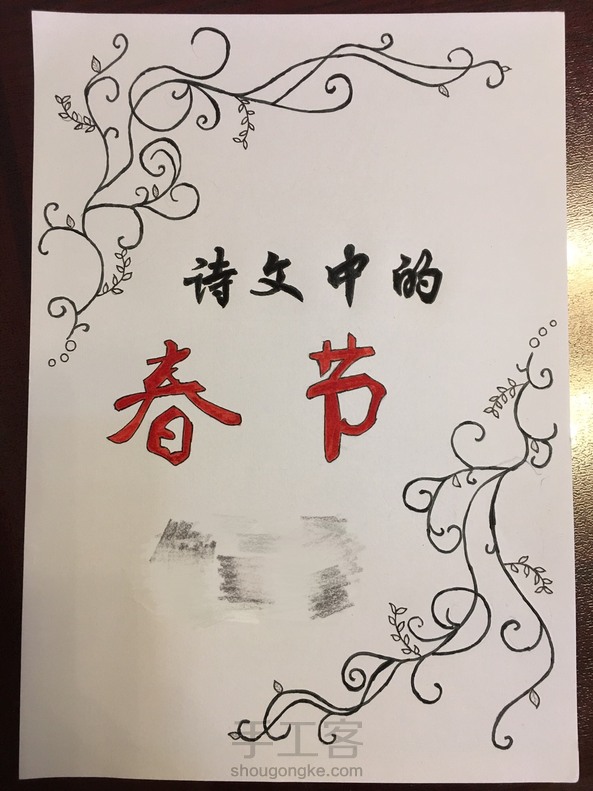 诗文中的
春节
手工客
shougongke.com